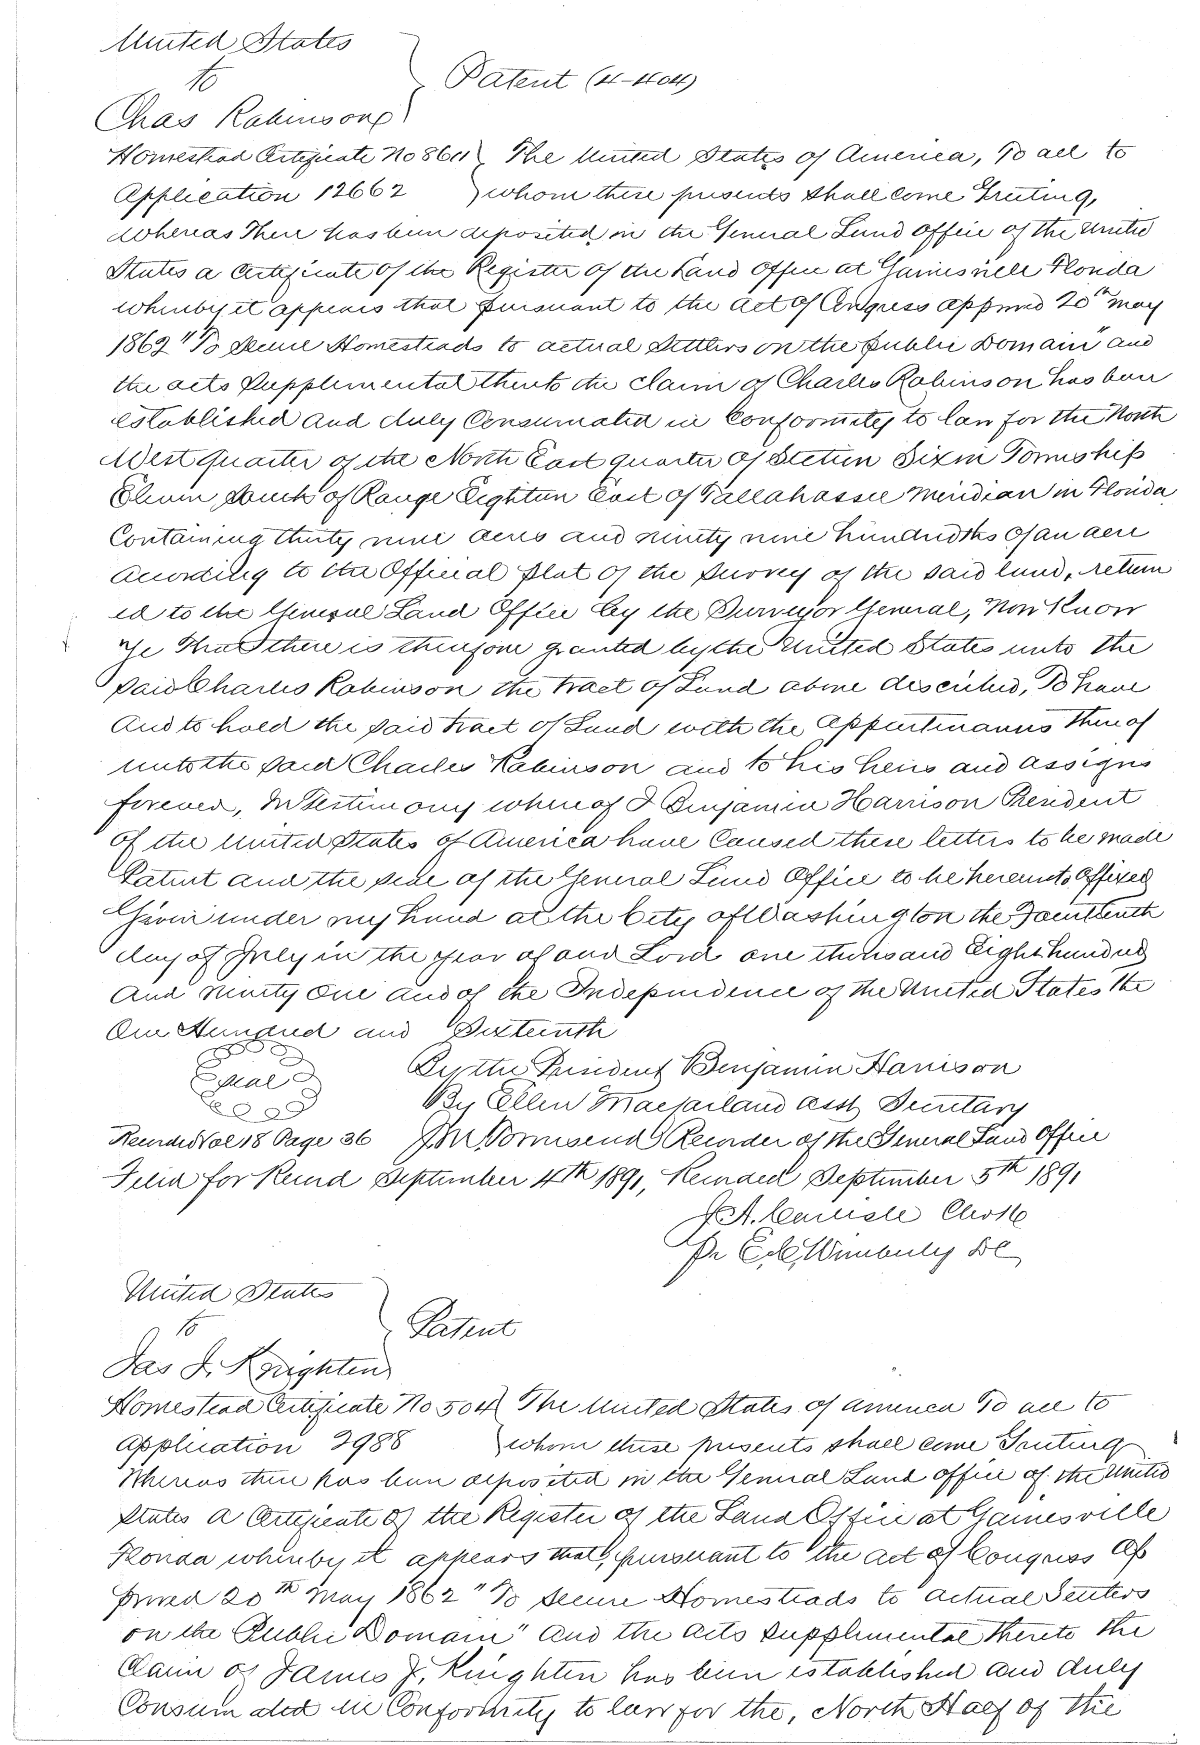 United States
to
Patent (4-404)
Chas Robinson
Homestead Certificate No The United States of America, To all to
Application 12662 whom these presents shall come Greeting,
Whereas There has been deposited in the General Land Office of the United
States a Certificate of the Register of the Land Office at Gainesville Florida
whereby it appears that pursuant to the act of Congress approved 20th May
1862 "To Secure Homesteads to actual Settlers on the public Domain" and
the acts Supplemental thereto the claim of Charles Robinson has been
established and duly Consumated in Conformity to law for the North
West quarter of the North East quarter of Section Township
Eleven South of Range Eighteen East of Tallahassee Meridian in Florida
Containing thirty nine acres and ninety nine hundredths of an acre
According to the Official plat of the survey of the said land, return
ed to the General Land Office by the Surveyor General, Now Know
Ye That there is therefore granted by the United States unto the
said Charles Robinson the tract of Land above described, To have
And to hold the said tract of Land with the Appurtenances thereof
unto the said Charles Robinson and to his heirs and assigns
forever, In Testimony whereof I Benjamin Harrison President
of the United States of America have Caused these letters to be made
Patent and the seal of the General Land Office to be hereunto Affixed
Given under my hand at the City of Washington the Fourteenth
day of July in the year of our Lord one thousand Eight hundred
And ninety One and of the Independence of the United States the
One Hundred and Sixteenth
Seal By the President Benjamin Harrison
By Ellen Macfarland asst Secretary
Recorded Vol 18 Page 36 Townsend Recorder of the General Land Office
Filed for Record September 4th 1891, Recorded September 5th 1891
J A. Carlisle Clerk
Pr E. C. Wimberly DC
United States
to
Patent
Jas J. Knighten
Homestead Certificate No 504 The United States of America To all to
Application 2988 whom these presents shall come Greeting
Whereas there has been deposited in the General Land office of the United
States a Certificate of the Register of the Land Office at Gainesville
Florida whereby it appears that, pursuant to the act of Congress Ap
proved 20th May 1862 "To Secure Homesteads to actual Settlers
on the Public Domain" and the acts supplimental thereto the
Claim of James J. Knighten has been established and duly
Consumated in Conformity to law for the, North Half of the